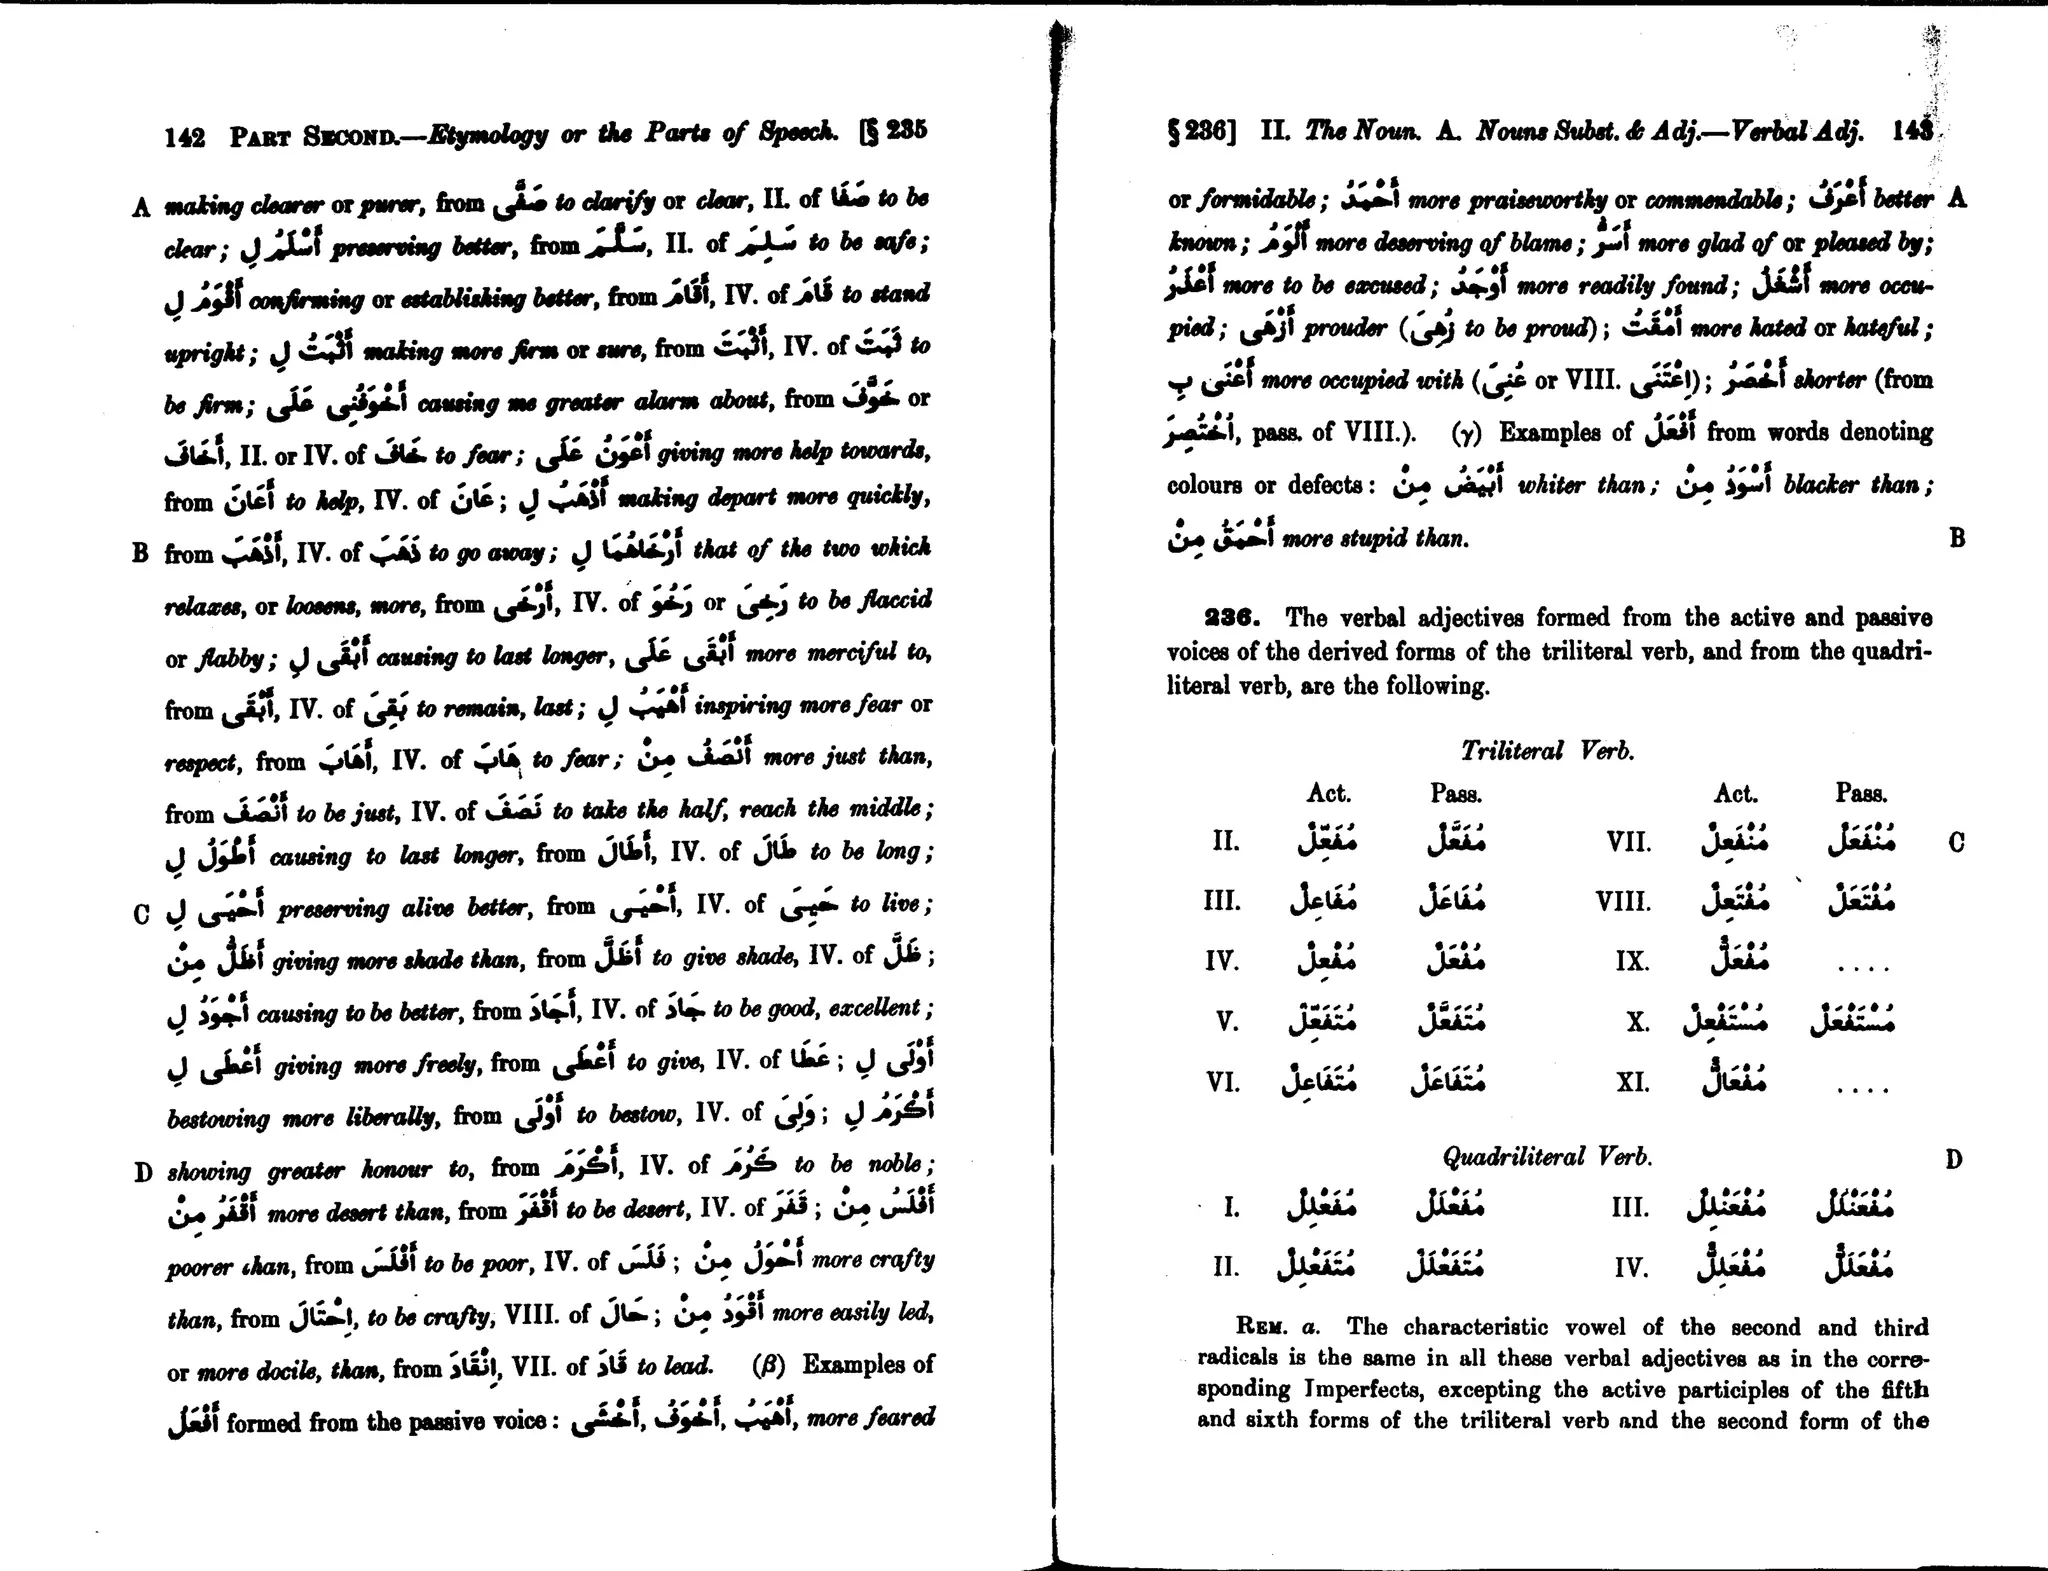 142 PART SECOND.—Etymology or the Parts of Speech. [§ 235
A making clearer or purer, from صَفَّى to clarify or clear, II. of صَفَا to be
clear; أَسْلَمُ لِ preserving better, from سَلَّمَ, II. of سَلِمَ to be safe;
أَقْوَمُ لِ confirming or establishing better, from أَقَامَ, IV. of قَامَ to stand
upright; أَثْبَتُ لِ making more firm or sure, from أَثْبَتَ, IV. of ثَبَتَ to
be firm; أَخْوَفُنِى عَلَى causing me greater alarm about, from خَوَّفَ or
أَخَافَ, II. or IV. of خَافَ to fear; أَعْوَنُ عَلَى giving more help towards,
from أَعَانَ to help, IV. of عَانَ; أَذْهَبُ لِ making depart more quickly,
B from أَذْهَبَ, IV. of ذَهَبَ to go away; أَرْخَاهُمَا لِ that of the two which
relaxes, or loosens, more, from أَرْخَى, IV. of رَخُوَ or رَخِىَ to be flaccid
or flabby; أَبْقَى لِ causing to last longer, أَبْقَى عَلَى more merciful to,
from أَبْقَى, IV. of بَقِىَ to remain, last; أَهْيَبُ لِ inspiring more fear or
respect, from أَهَابَ, IV. of هَابَ to fear; أَنْصَفُ مِنْ more just than,
from أَنْصَفَ to be just, IV. of نَصَفَ to take the half, reach the middle;
أَطْوَلُ لِ causing to last longer, from أَطَالَ, IV. of طَالَ to be long;
C أَحْيَى لِ preserving alive better, from أَحْيَى, IV. of حَيِىَ to live;
أَظَلُّ مِنْ giving more shade than, from أَظَلَّ to give shade, IV. of ظَلَّ;
أَجْوَدُ لِ causing to be better, from أَجَادَ, IV. of جَادَ to be good, excellent;
أَعْطَى لِ giving more freely, from أَعْطَى to give, IV. of عَطَا; أَوْلَى لِ
bestowing more liberally, from أَوْلَى to bestow, IV. of وَلِىَ; أَكْرَمُ لِ
D showing greater honour to, from أَكْرَمَ, IV. of كَرُمَ to be noble;
أَقْفَرُ مِنْ more desert than, from أَقْفَرَ to be desert, IV. of قَفَرَ; أَفْلَسُ مِنْ
poorer than, from أَفْلَسَ to be poor, IV. of فَلَسَ; أَحْوَلُ مِنْ more crafty
than, from اِحْتَالَ, to be crafty, VIII. of حَالَ; أَقْوَدُ مِنْ more easily led,
or more docile, than, from اِنْقَادَ, VII. of قَادَ to lead. (β) Examples of
أَفْعَلُ formed from the passive voice: أَهْيَبُ, أَخْوَفُ, أَخْشَى, more feared
§ 236] II. The Noun. A. Nouns Subst. & Adj.—Verbal Adj. 143
or formidable; أَحْمَدُ more praiseworthy or commendable; أَعْرَفُ better A
known; أَلْوَمُ more deserving of blame; أَسَرُّ more glad of or pleased by;
أَعْذَرُ more to be excused; أَوْجَدُ more readily found; أَشْغَلُ more occu-
pied; أَزْهَى prouder (زُهِىَ to be proud); أَمْقَتُ more hated or hateful;
أَعْنَى بِ more occupied with (عُنِىَ or VIII. اِعْتَنَى); أَخْصَرُ shorter (from
اُخْتُصِرَ, pass. of VIII.). (γ) Examples of أَفْعَلُ from words denoting
colours or defects: أَبْيَضُ مِنْ whiter than; أَسْوَدُ مِنْ blacker than;
أَحْمَقُ مِنْ more stupid than. B
236. The verbal adjectives formed from the active and passive
voices of the derived forms of the triliteral verb, and from the quadri-
literal verb, are the following.
Triliteral Verb.
Act. Pass. Act. Pass.
II. مُفَعِّلٌ مُفَعَّلٌ VII. مُنْفَعِلٌ مُنْفَعَلٌ C
III. مُفَاعِلٌ مُفَاعَلٌ VIII. مُفْتَعِلٌ مُفْتَعَلٌ
IV. مُفْعِلٌ مُفْعَلٌ IX. مُفْعَلٌّ ....
V. مُتَفَعِّلٌ مُتَفَعَّلٌ X. مُسْتَفْعِلٌ مُسْتَفْعَلٌ
VI. مُتَفَاعِلٌ مُتَفَاعَلٌ XI. مُفْعَالٌّ ....
Quadriliteral Verb. D
I. مُفَعْلِلٌ مُفَعْلَلٌ III. مُفْعَنْلِلٌ مُفْعَنْلَلٌ
II. مُتَفَعْلِلٌ مُتَفَعْلَلٌ IV. مُفْعَلِلٌّ مُفْعَلَلٌّ
REM. a. The characteristic vowel of the second and third
radicals is the same in all these verbal adjectives as in the corre-
sponding Imperfects, excepting the active participles of the fifth
and sixth forms of the triliteral verb and the second form of the